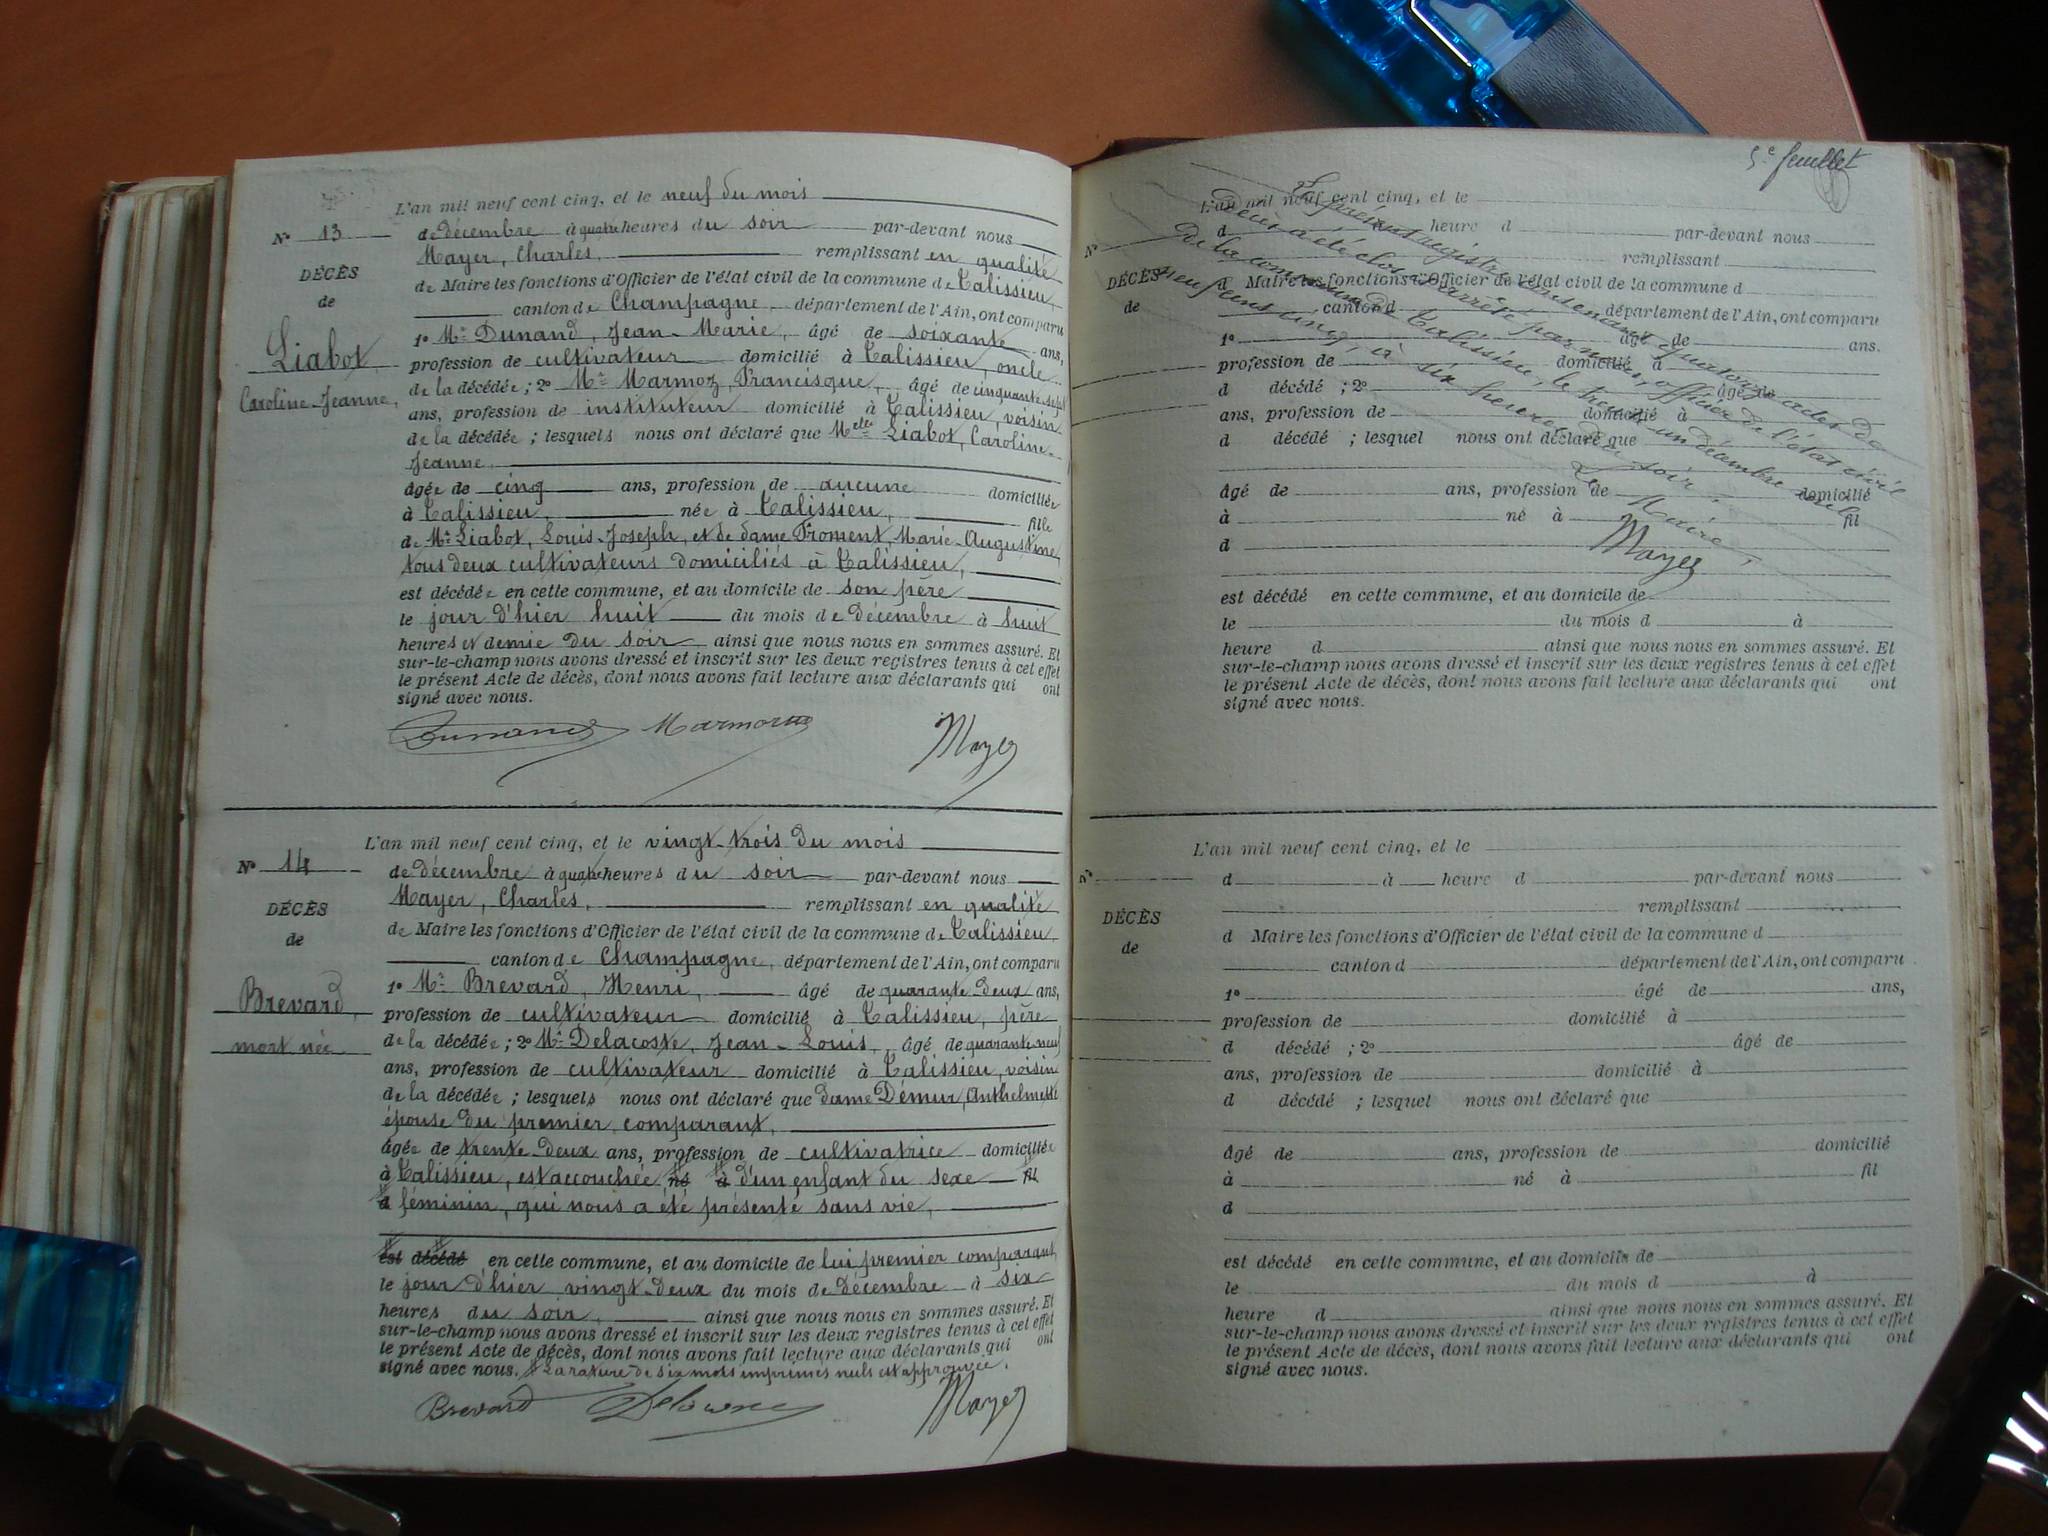 L'an mil neuf cent cinq, et le neuf du mois
N° 13
de décembre à quatre heures du soir par-devant nous
Mayer, Charles, remplissant en qualité
DÉCÈS
de Maire les fonctions d'Officier de l'état civil de la commune de Talissieu,
de
canton de Champagne, département de l'Ain, ont comparu
1° Mr Dunand, Jean-Marie, âgé de soixante ans,
Liabot
profession de cultivateur domicilié à Talissieu, oncle
Caroline-Jeanne,
de la décédée ; 2° Mr Marmoz, Francisque, âgé de cinquante-sept
ans, profession de instituteur domicilié à Talissieu, voisin
de la décédée ; lesquels nous ont déclaré que Melle Liabot, Caroline-
Jeanne,
âgée de cinq ans, profession de aucune domiciliée
à Talissieu, née à Talissieu, fille
de Mr Liabot, Louis-Joseph, et de dame Froment, Marie-Augustine,
tous deux cultivateurs domiciliés à Talissieu,
est décédée en cette commune, et au domicile de son père
le jour d'hier huit du mois de décembre à huit
heures et demie du soir ainsi que nous nous en sommes assuré. Et
sur-le-champ nous avons dressé et inscrit sur les deux registres tenus à cet effet
le présent Acte de décès, dont nous avons fait lecture aux déclarants qui ont
signé avec nous.
Dunand Marmoz Mayer
L'an mil neuf cent cinq, et le vingt-trois du mois
N° 14
de décembre à quatre heures du soir par-devant nous
Mayer, Charles, remplissant en qualité
DÉCÈS
de Maire les fonctions d'Officier de l'état civil de la commune de Talissieu
de
canton de Champagne, département de l'Ain, ont comparu
1° Mr Brevard, Henri, âgé de quarante-deux ans,
Brevard,
profession de cultivateur domicilié à Talissieu, père
mort née
de la décédée ; 2° Mr Delacoste, Jean-Louis, âgé de quarante-neuf
ans, profession de cultivateur domicilié à Talissieu, voisin
de la décédée ; lesquels nous ont déclaré que dame Démur, Anthelmette
épouse du premier comparant,
âgée de trente-deux ans, profession de cultivatrice domiciliée
à Talissieu, est accouchée né à d'un enfant du sexe fil
d féminin, qui nous a été présenté sans vie,
est décédé en cette commune, et au domicile de lui premier comparant
le jour d'hier vingt-deux du mois de décembre à six
heures du soir, ainsi que nous nous en sommes assuré. Et
sur-le-champ nous avons dressé et inscrit sur les deux registres tenus à cet effet
le présent Acte de décès, dont nous avons fait lecture aux déclarants qui ont
signé avec nous. La rature de six mots imprimés nuls est approuvée.
Brevard Mayer
5e feuillet
L'an mil neuf cent cinq, et le
N°
d heure d par-devant nous
remplissant
DÉCÈS
d Maire les fonctions d'Officier de l'état civil de la commune d
de
canton d département de l'Ain, ont comparu
1° âgé de ans.
profession de domicilié à
d décédé ; 2° âgé de
ans, profession de domicilié à
d décédé ; lesquel nous ont déclaré que
âgé de ans, profession de domicilié
à né à fil
d
est décédé en cette commune, et au domicile de
le du mois d à
heure d ainsi que nous nous en sommes assuré. Et
sur-le-champ nous avons dressé et inscrit sur les deux registres tenus à cet effet
le présent Acte de décès, dont nous avons fait lecture aux déclarants qui ont
signé avec nous.
Le présent registre contenant quatorze actes de
décès a été clos et arrêté par nous, officier de l'état civil
de la commune de Talissieu, le trente-un décembre mil
neuf cent cinq, à six heures du soir.
Le Maire,
Mayer
L'an mil neuf cent cinq, et le
N°
d à heure d par-devant nous
remplissant
DÉCÈS
d Maire les fonctions d'Officier de l'état civil de la commune d
de
canton d département de l'Ain, ont comparu
1° âgé de ans,
profession de domicilié à
d décédé ; 2° âgé de
ans, profession de domicilié à
d décédé ; lesquel nous ont déclaré que
âgé de ans, profession de domicilié
à né à fil
d
est décédé en cette commune, et au domicile de
le du mois d à
heure d ainsi que nous nous en sommes assuré. Et
sur-le-champ nous avons dressé et inscrit sur les deux registres tenus à cet effet
le présent Acte de décès, dont nous avons fait lecture aux déclarants qui ont
signé avec nous.